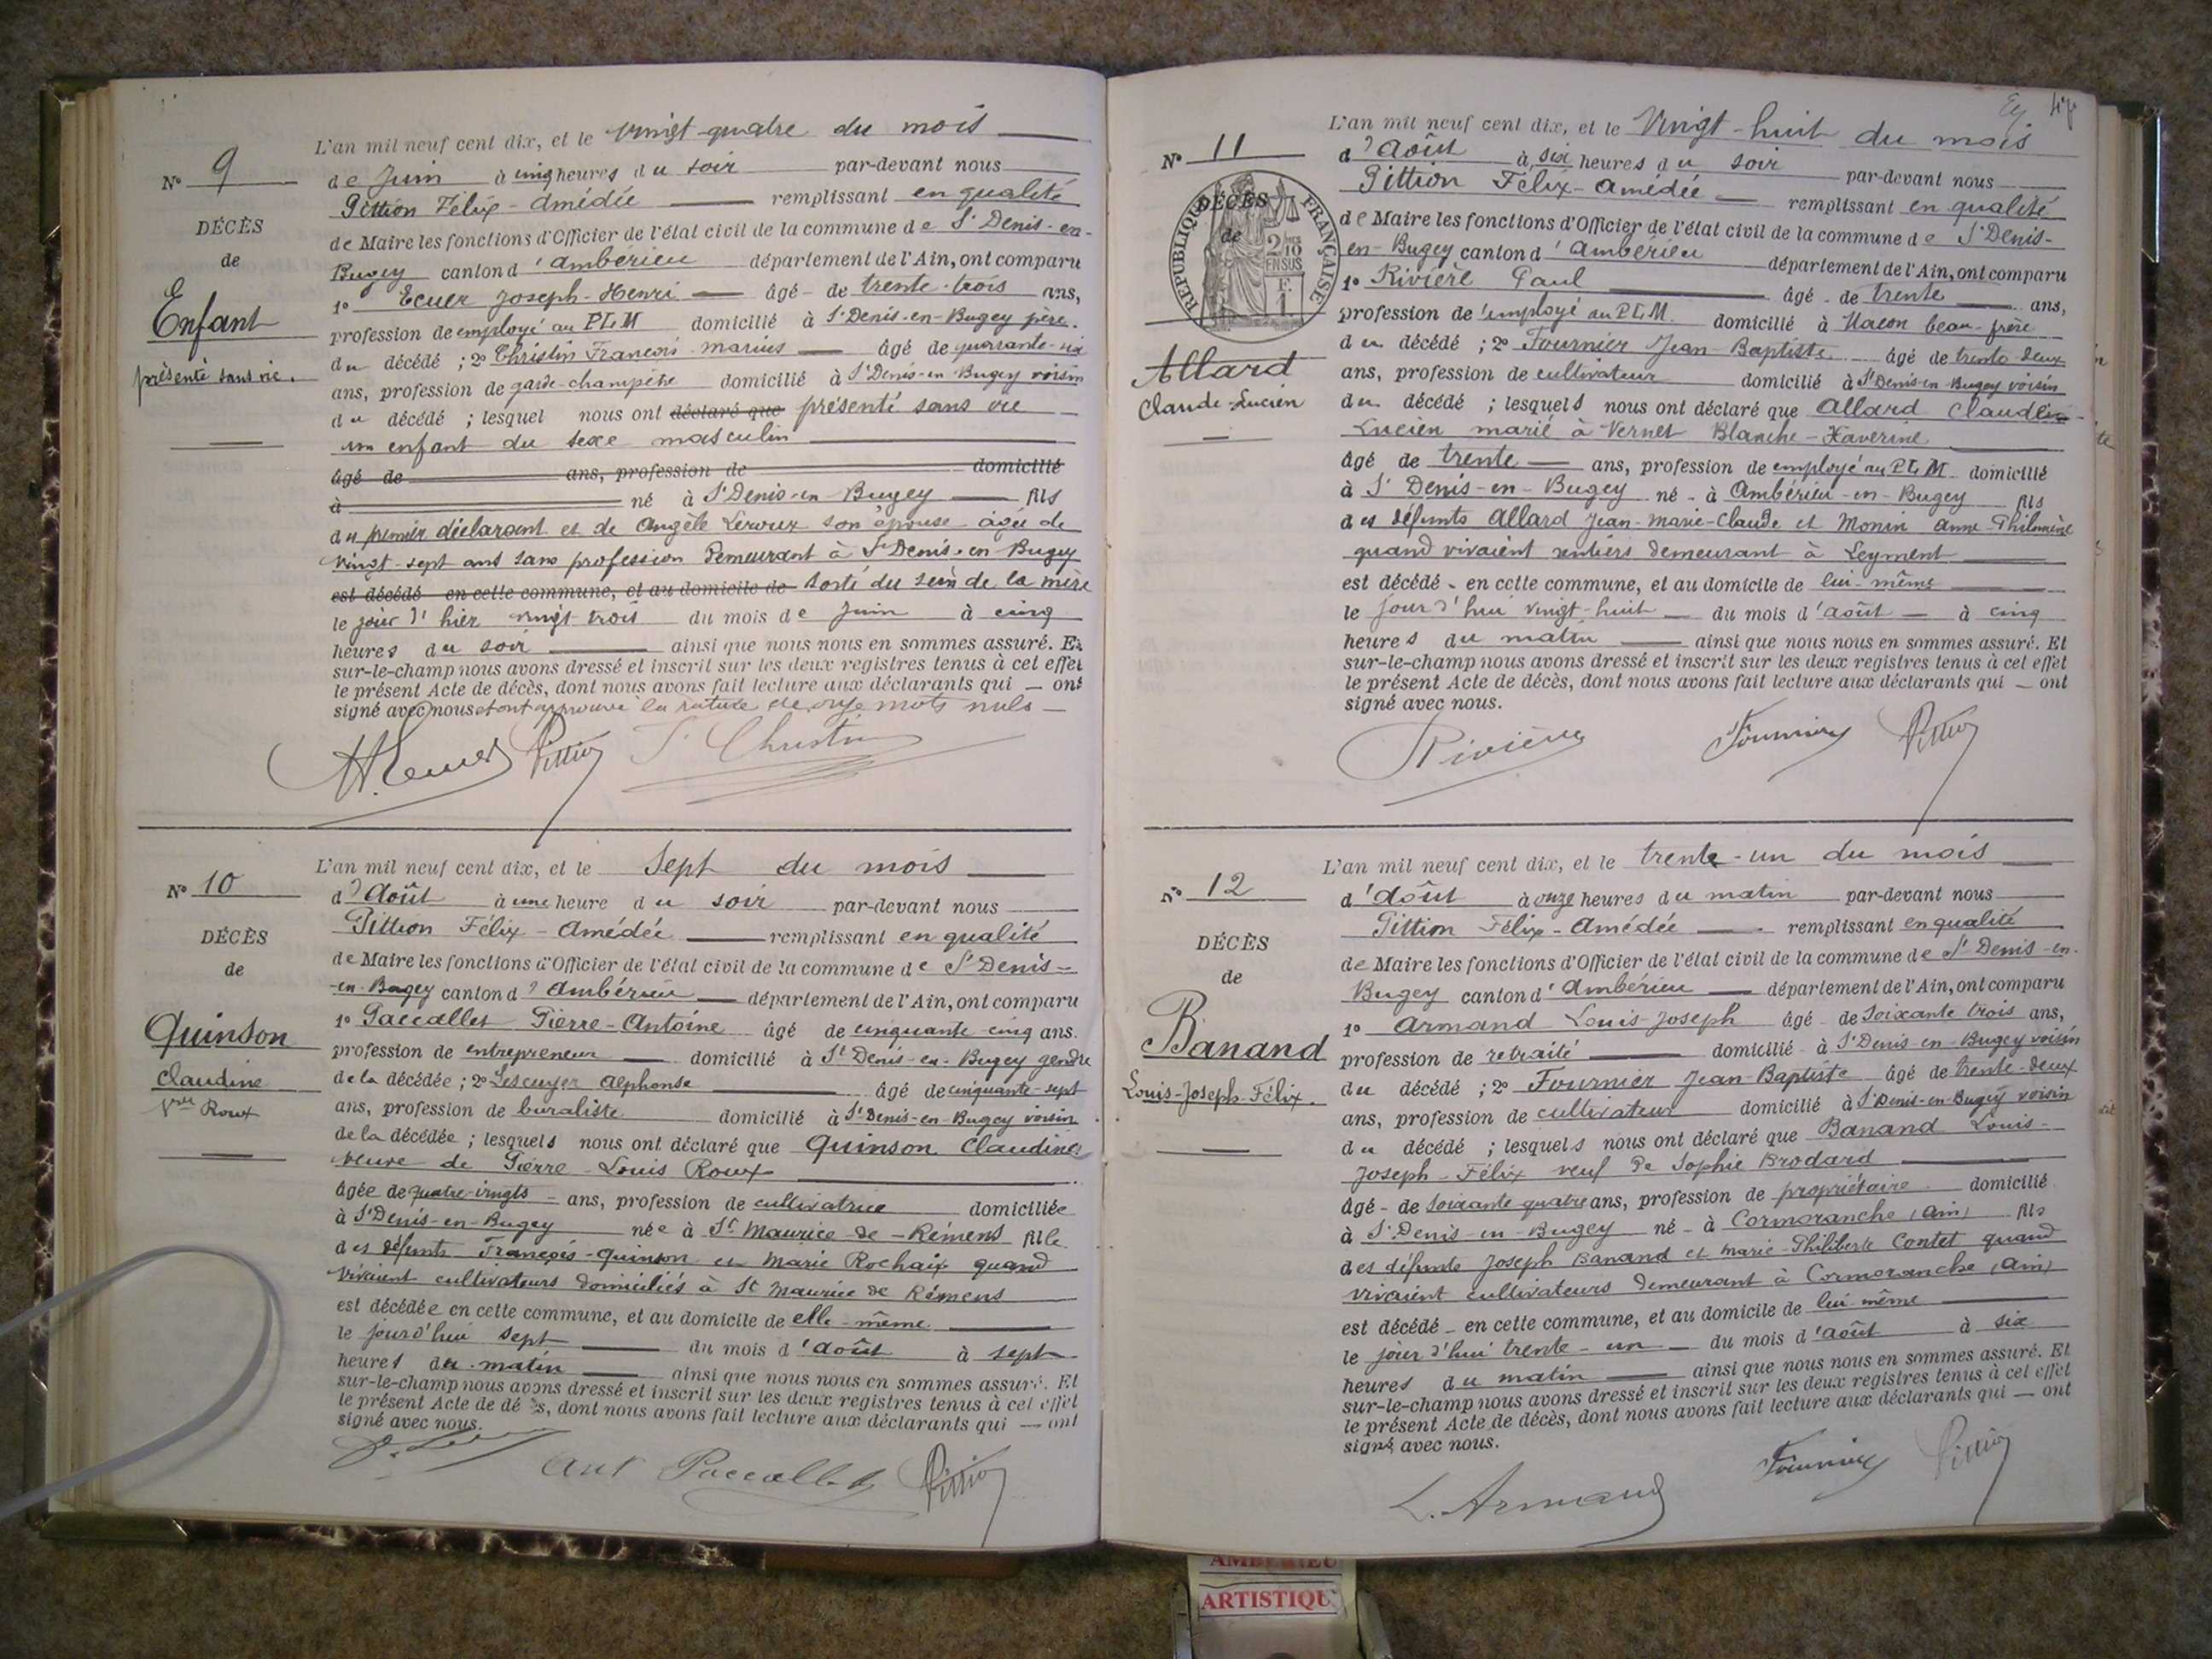 L'an mil neuf cent dix, et le vingt-quatre du mois
N° 9
de Juin à cinq heures du soir par-devant nous
Pittion Félix-Amédée remplissant en qualité
DÉCÈS
de Maire les fonctions d'Officier de l'état civil de la commune de St Denis-en-
de
Bugey canton d'Ambérieu département de l'Ain, ont comparu
Enfant
1° Ecuer Joseph-Henri âgé de trente-trois ans,
profession de employé au PLM domicilié à St Denis-en-Bugey père
présenté sans vie.
du décédé ; 2° Christin François-Marius âgé de quarante-six
ans, profession de garde-champêtre domicilié à St Denis-en-Bugey voisin
du décédé ; lesquel nous ont déclaré que présenté sans vie
un enfant du sexe masculin
âgé de ans, profession de domicilié
à né à St Denis-en-Bugey fils
du premier déclarant et de Angèle Leroux son épouse âgée de
vingt-sept ans sans profession demeurant à St Denis-en-Bugey
est décédé en cette commune, et au domicile de sorti du sein de la mère
le jour d'hier vingt trois du mois de Juin à cinq
heures du soir ainsi que nous nous en sommes assuré. Et
sur-le-champ nous avons dressé et inscrit sur les deux registres tenus à cet effet
le présent Acte de décès, dont nous avons fait lecture aux déclarants qui ont
signé avec nous et ont approuvé la rature de onze mots nuls
Pittion
Christin
L'an mil neuf cent dix, et le Sept du mois
N° 10
d'Août à une heure du soir par-devant nous
Pittion Félix-Amédée remplissant en qualité
DÉCÈS
de Maire les fonctions d'Officier de l'état civil de la commune de St Denis-
de
-en-Bugey canton d'Ambérieu département de l'Ain, ont comparu
Quinson
1° Paccallet Pierre-Antoine âgé de cinquante-cinq ans.
profession de entrepreneur domicilié à St Denis-en-Bugey gendre
Claudine
de la décédée ; 2° Lescuyer Alphonse âgé de cinquante-sept
Vve Roux
ans, profession de buraliste domicilié à St Denis-en-Bugey voisin
de la décédée ; lesquels nous ont déclaré que Quinson Claudine
veuve de Pierre-Louis Roux
âgée de quatre-vingts ans, profession de cultivatrice domiciliée
à St Denis-en-Bugey née à St Maurice-de-Rémens fille
des défunts François-Quinson et Marie Rochaix quand
vivaient cultivateurs domiciliés à St Maurice de Rémens
est décédée en cette commune, et au domicile de elle-même
le jourd'hui sept du mois d'août à sept
heures du matin ainsi que nous nous en sommes assuré. Et
sur-le-champ nous avons dressé et inscrit sur les deux registres tenus à cet effet
le présent Acte de dé s, dont nous avons fait lecture aux déclarants qui ont
signé avec nous.
Ant Paccallet Pittion
L'an mil neuf cent dix, et le Vingt-huit du mois
N° 11
d'août à six heures du soir par-devant nous
Pittion Félix-Amédée remplissant en qualité
RÉPUBLIQUE FRANÇAISE
DÉCÈS
de
2/10 EN SUS
F. 1.
de Maire les fonctions d'Officier de l'état civil de la commune de St Denis-
en-Bugey canton d'Ambérieu département de l'Ain, ont comparu
1° Rivière Paul âgé de trente ans,
profession de employé au PLM domicilié à Macon beau-frère
Allard
Claude-Lucien
du décédé ; 2° Fournier Jean-Baptiste âgé de trente-deux
ans, profession de cultivateur domicilié à St Denis-en-Bugey voisin
du décédé ; lesquels nous ont déclaré que Allard Claude
Lucien marié à Vernet Blanche-Xaverine
âgé de trente ans, profession de employé au PLM domicilié
à St Denis-en-Bugey né à Ambérieu-en-Bugey fils
des défunts Allard Jean-Marie-Claude et Monin Anne-Philomène
quand vivaient rentiers demeurant à Leyment
est décédé en cette commune, et au domicile de lui-même
le jour d'hui vingt-huit du mois d'août à cinq
heures du matin ainsi que nous nous en sommes assuré. Et
sur-le-champ nous avons dressé et inscrit sur les deux registres tenus à cet effet
le présent Acte de décès, dont nous avons fait lecture aux déclarants qui ont
signé avec nous.
Rivière Fournier Pittion
L'an mil neuf cent dix, et le trente-un du mois
N° 12
d'Août à onze heures du matin par-devant nous
Pittion Félix-Amédée remplissant en qualité
DÉCÈS
de Maire les fonctions d'Officier de l'état civil de la commune de St Denis-en-
de
Bugey canton d'Ambérieu département de l'Ain, ont comparu
Banand
1° Armand Louis-Joseph âgé de soixante trois ans,
profession de retraité domicilié à St Denis-en-Bugey voisin
Louis-Joseph-Félix.
du décédé ; 2° Fournier Jean-Baptiste âgé de trente-deux
ans, profession de cultivateur domicilié à St Denis-en-Bugey voisin
du décédé ; lesquels nous ont déclaré que Banand Louis-
Joseph-Félix veuf de Sophie Brodard
âgé de soixante quatre ans, profession de propriétaire domicilié
à St Denis-en-Bugey né à Cormoranche (Ain) fils
des défunts Joseph Banand et Marie-Philiberte Contet quand
vivaient cultivateurs demeurant à Cormoranche (Ain)
est décédé en cette commune, et au domicile de lui-même
le jour d'hui trente-un du mois d'août à six
heures du matin ainsi que nous nous en sommes assuré. Et
sur-le-champ nous avons dressé et inscrit sur les deux registres tenus à cet effet
le présent Acte de décès, dont nous avons fait lecture aux déclarants qui ont
signé avec nous.
L. Armand Fournier Pittion
AMBÉRIEU
ARTISTIQU